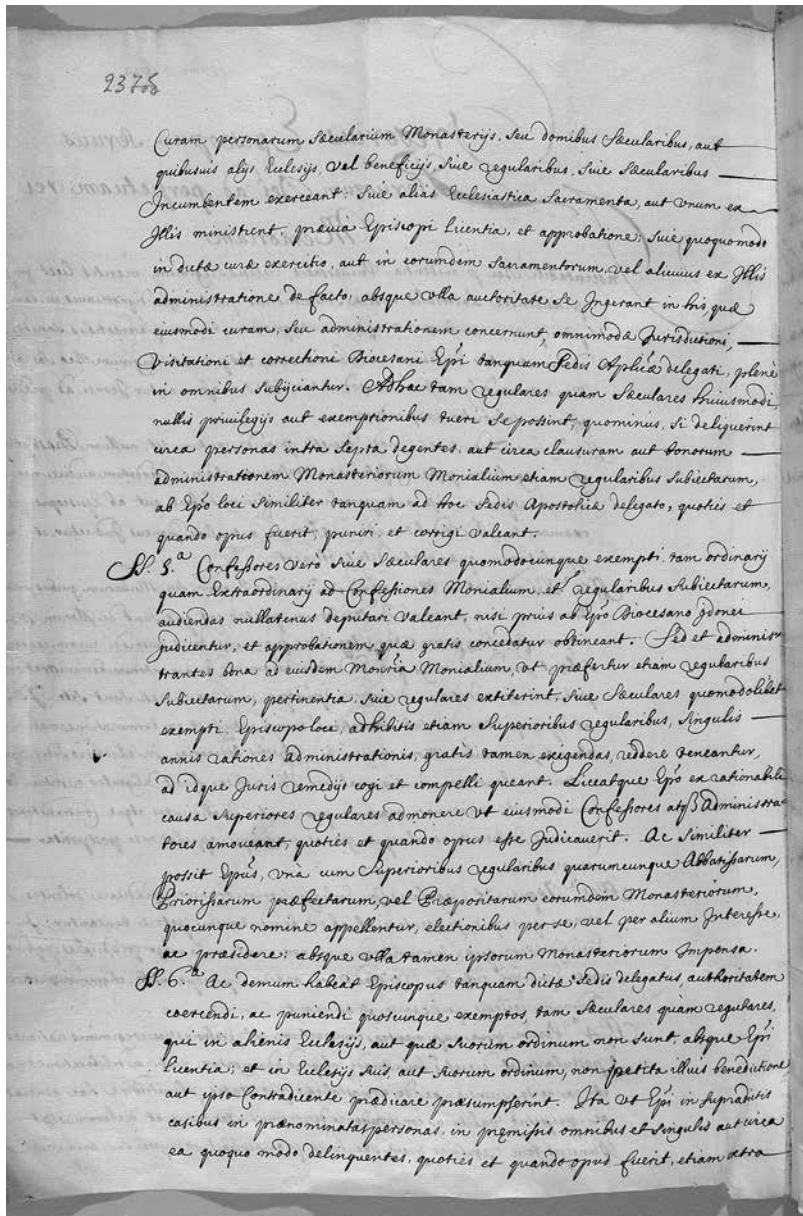 Curam personarum Sæcularium Monasterijs, seu domibus Sæcularibus, aut
quibusuis alijs Ecclesijs, vel beneficijs, siue regularibus, siue Sæcularibus
Incumbentem exerceant: Siue alias Ecclesiastica Sacramenta, aut Vnum ex
Jllis ministrent, præuia Episcopi Licentia, et approbatione; siue quoquomodo
in dictæ curæ exercitio, aut in eorumdem Sacramentorum, vel alicuius ex Jllis
administratione de facto, absque vlla auctoritate se Jngerant in his, quæ
eiusmodi curam, seu administrationem concernunt, omnimodæ Jurisdictioni,
Visitationi et correctioni Diocesani Epi tanquam Sedis Aplicæ delegati, plenè
in omnibus subijciantur. Adhæc tam regulares quam Sæculares huiusmodi,
nullis priuilegijs aut exemptionibus tueri se possint, quominus, si deliquerint
circa personas intra Septa degentes, aut circa clausuram aut bonorum
administrationem Monasteriorum Monialium etiam regularibus Subiectarum,
ab Epo loci similiter tanquam ad hoc Sedis Apostolicæ delegato, quoties et
quando opus fuerit, puniri, et corrigi valeant.
§. 5.a Confessores verò siue Sæculares quomodocunque exempti, tam ordinarij
quam Extraordinarij ad Confessiones Monialium, et regularibus Subiectarum,
audiendas nullatenus deputari valeant, nisi prius ab Epo Diocesano Jdonei
judicentur, et approbationem quæ gratis concedatur obtineant. Sed et adminis-
trantes bona ad eiusdem Monria Monialium, vt præfertur etiam regularibus
Subiectarum, pertinentia, siue regulares extiterint, siue Sæculares quomodolibet
exempti, Episcopo loci, adhibitis etiam Superioribus regularibus, singulis
annis rationes administrationis, gratis tamen exigendas, reddere teneantur,
ad idque Juris remedijs cogi et compelli queant. Liceatque Epo ex rationabili
causa Superiores regulares admonere vt eiusmodi Confessores atq3 Administra-
tores amoueant, quoties et quando opus esse Judicauerit. Ac Similiter
possit Epus, vnà cum Superioribus regularibus quarumcunque Abbatissarum,
Priorissarum præfectarum, vel Præpositarum eorumdem Monasteriorum,
quocunque nomine appellentur, electionibus per se, vel per alium Jnteresse,
ac præsidere; absque vlla tamen ipsorum Monasteriorum Jmpensa.
§. 6.a Ac demum habeat Episcopus tanquam dictæ Sedis delegatus, authoritatem
coercendi, ac puniendi quoscunque exemptos, tam Sæculares quàm regulares,
qui in alienis Ecclesijs, aut quæ suorum ordinum non sunt, absque Epi
licentia; et in Ecclesijs suis, aut suorum ordinum, non petita illius benedictione
aut ipso Contradicente prædicare præsumpserint. Ita vt Epi in supradictis
casibus in prænominatas personas, in præmissis omnibus et singulis aut circa
ea quoquo modo delinquentes, quoties et quando opus fuerit, etiam extra